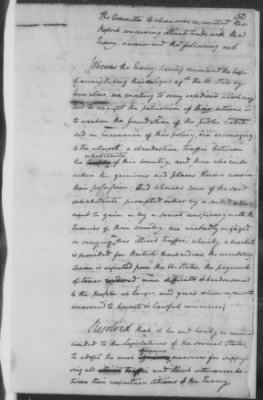 The Committee to whom was recommitted the
Report concerning illicit trade with the
Enemy recommend the following act
Whereas the Enemy having renounced the hope
of accomplishing their designs agst. the U. States by
force alone, are resorting to every expedient which may
tend to corrupt the patriotism of their citizens or
to weaken the foundation of the public credit
and in pursuance of this policy, are encouraging
to the utmost, a clandestine traffic between
inhabitants
the of this country, and those who reside
within the garrisons and places therein now in
their possession. And whereas some of the said
inhabitants, prompted either by a sordid
to gain or by a secret conspiracy with the
Enemies of their country, are wickedly engaged
in carrying on this illicit traffic, whereby a market
is provided for British Merchandizes, the circulating
specie is exported from the U. States, the payment
of taxes rendered more difficult & burdensome
to the people at large, and great discouragement
occasioned to honest & lawful commerce;
Resolved that it be and hereby is recom-
mended to the legislatures of the several States,
to adopt the most efficacious measures for suppress-
ing all traffic and illicit intercourse be-
tween their respective Citizens & the Enemy